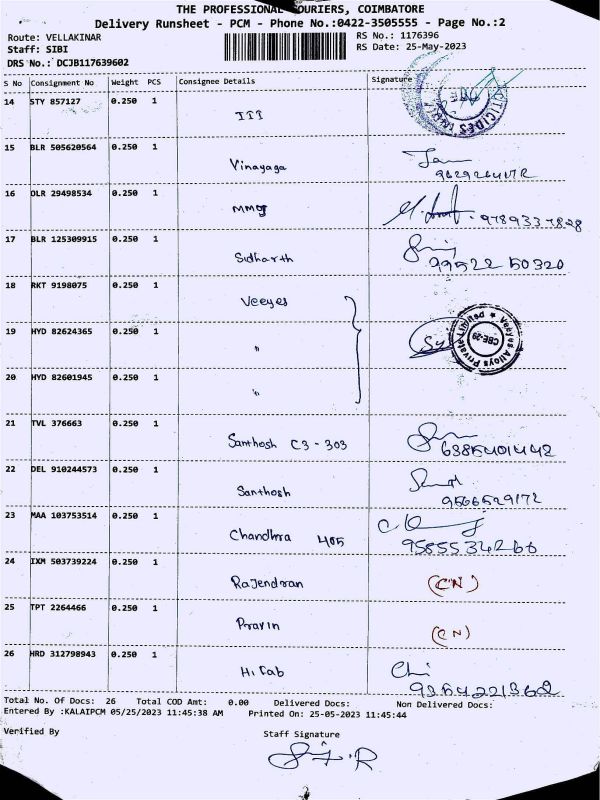 THE PROFESSIONAL COURIERS, COIMBATORE
Delivery Runsheet - PCM - Phone No.:0422-3505555 - Page No.:2
Route: VELLAKINAR RS No.: 1176396
Staff: SIBI RS Date: 25-May-2023
DRS No.: DCJB117639602
S No Consignment No Weight PCS Consignee Details Signature
14 STY 857127 0.250 1
III
15 BLR 505620564 0.250 1
Vinayaga
16 OLR 29498534 0.250 1
MMG 9789337828
17 BLR 125309915 0.250 1
Sidharth 99522 50320
18 RKT 9198075 0.250 1 Veeyes
19 HYD 82624365 0.250 1 "
Veeyes Alloys Private Limited
CBE-29
20 HYD 82601945 0.250 1 "
21 TVL 376663 0.250 1
Santhosh C3-303 6385401442
22 DEL 910244573 0.250 1
Santhosh 9566529172
23 MAA 103753514 0.250 1
Chandhra 405 9585534266
24 IXM 503739224 0.250 1
Rajendran (CN)
25 TPT 2264466 0.250 1
Pravin (CN)
26 HRD 312798943 0.250 1
Hifab
Total No. Of Docs: 26 Total COD Amt: 0.00 Delivered Docs: Non Delivered Docs:
Entered By :KALAIPCM 05/25/2023 11:45:38 AM Printed On: 25-05-2023 11:45:44
Verified By Staff Signature